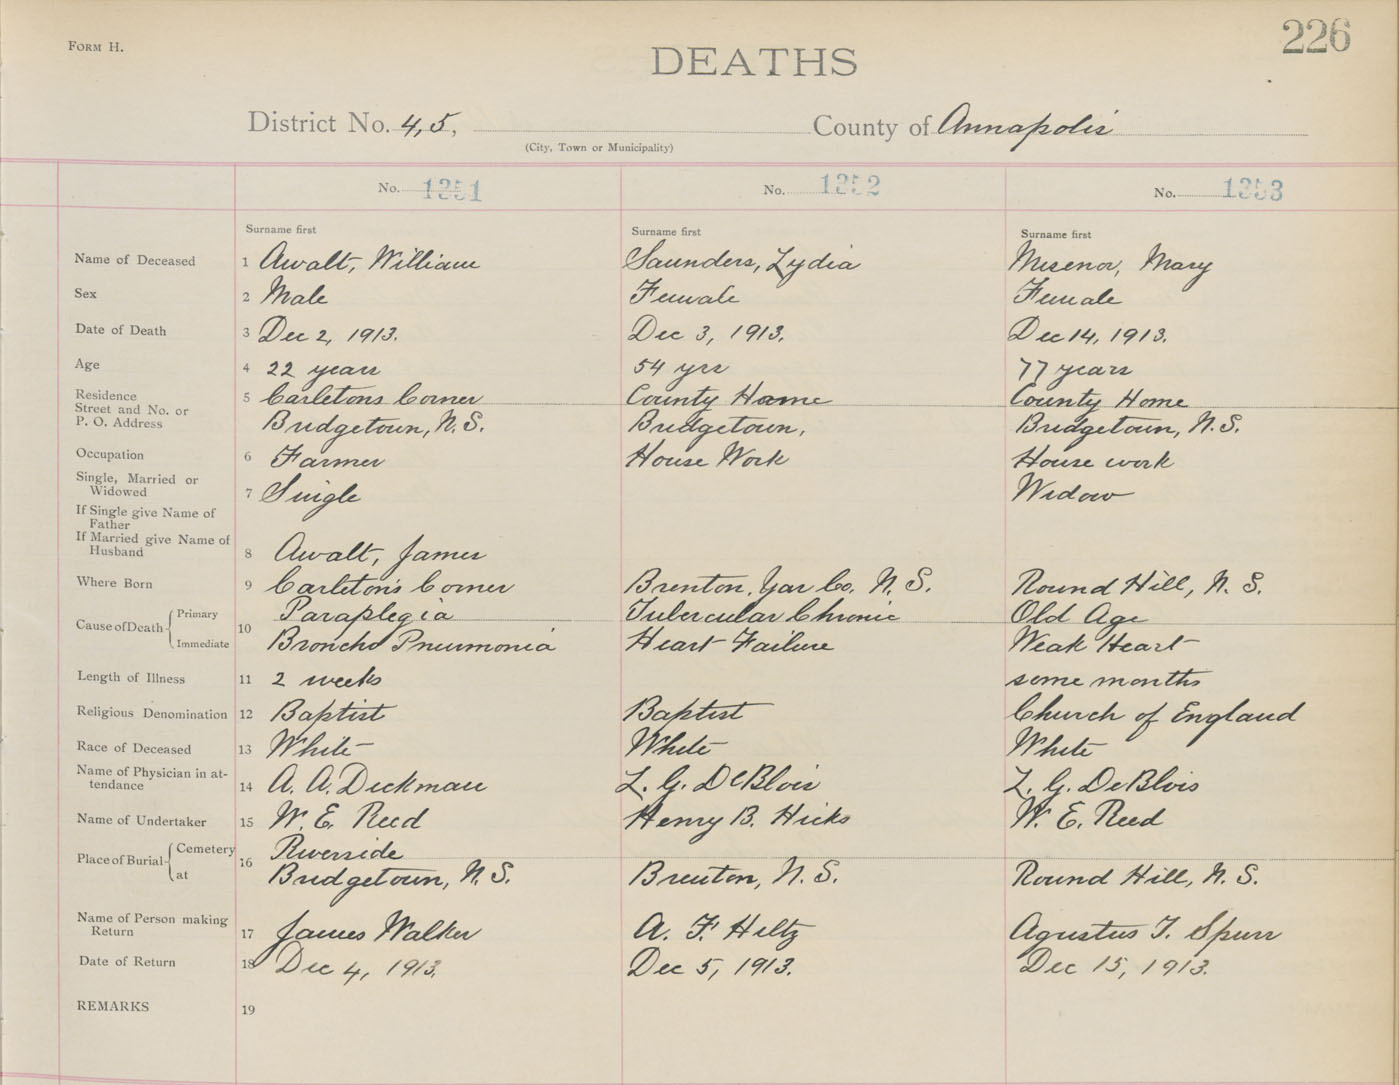 FORM H.
226
DEATHS
District No. 4,5,
County of Annapolis
(City, Town or Municipality)
No. 1351
No. 1352
No. 1353
Surname first
Surname first
Surname first
Name of Deceased 1 Awalt, William
Saunders, Lydia
Misenor, Mary
Sex 2 Male
Female
Female
Date of Death 3 Dec 2, 1913.
Dec 3, 1913.
Dec 14, 1913.
Age 4 22 years
54 yrs
77 years
Residence
Street and No. or
P. O. Address
5 Carletons Corner
Bridgetown, N.S.
County Home
Bridgetown,
County Home
Bridgetown, N.S.
Occupation 6 Farmer
House Work
House work
Single, Married or
Widowed
7 Single
Widow
If Single give Name of
Father
If Married give Name of
Husband
8 Awalt, James
Where Born 9 Carleton's Corner
Brenton, Yar Co. N. S.
Round Hill, N. S.
Cause of Death Primary
Immediate
10
Paraplegia
Broncho Pneumonia
Tubercular Chronic
Heart Failure
Old Age
Weak Heart
Length of Illness 11 2 weeks
some months
Religious Denomination 12 Baptist
Baptist
Church of England
Race of Deceased 13 White
White
White
Name of Physician in at-
tendance
14 A. A. Deckman
L. G. DeBlois
L. G. DeBlois
Name of Undertaker 15 W. E. Reed
Henry B. Hicks
W. E. Reed
Place of Burial Cemetery
at
16
Riverside
Bridgetown, N. S.
Brenton, N. S.
Round Hill, N. S.
Name of Person making
Return
17 James Walker
A. F. Hiltz
Agustus T. Spurr
Date of Return 18 Dec 4, 1913.
Dec 5, 1913.
Dec 15, 1913.
REMARKS 19